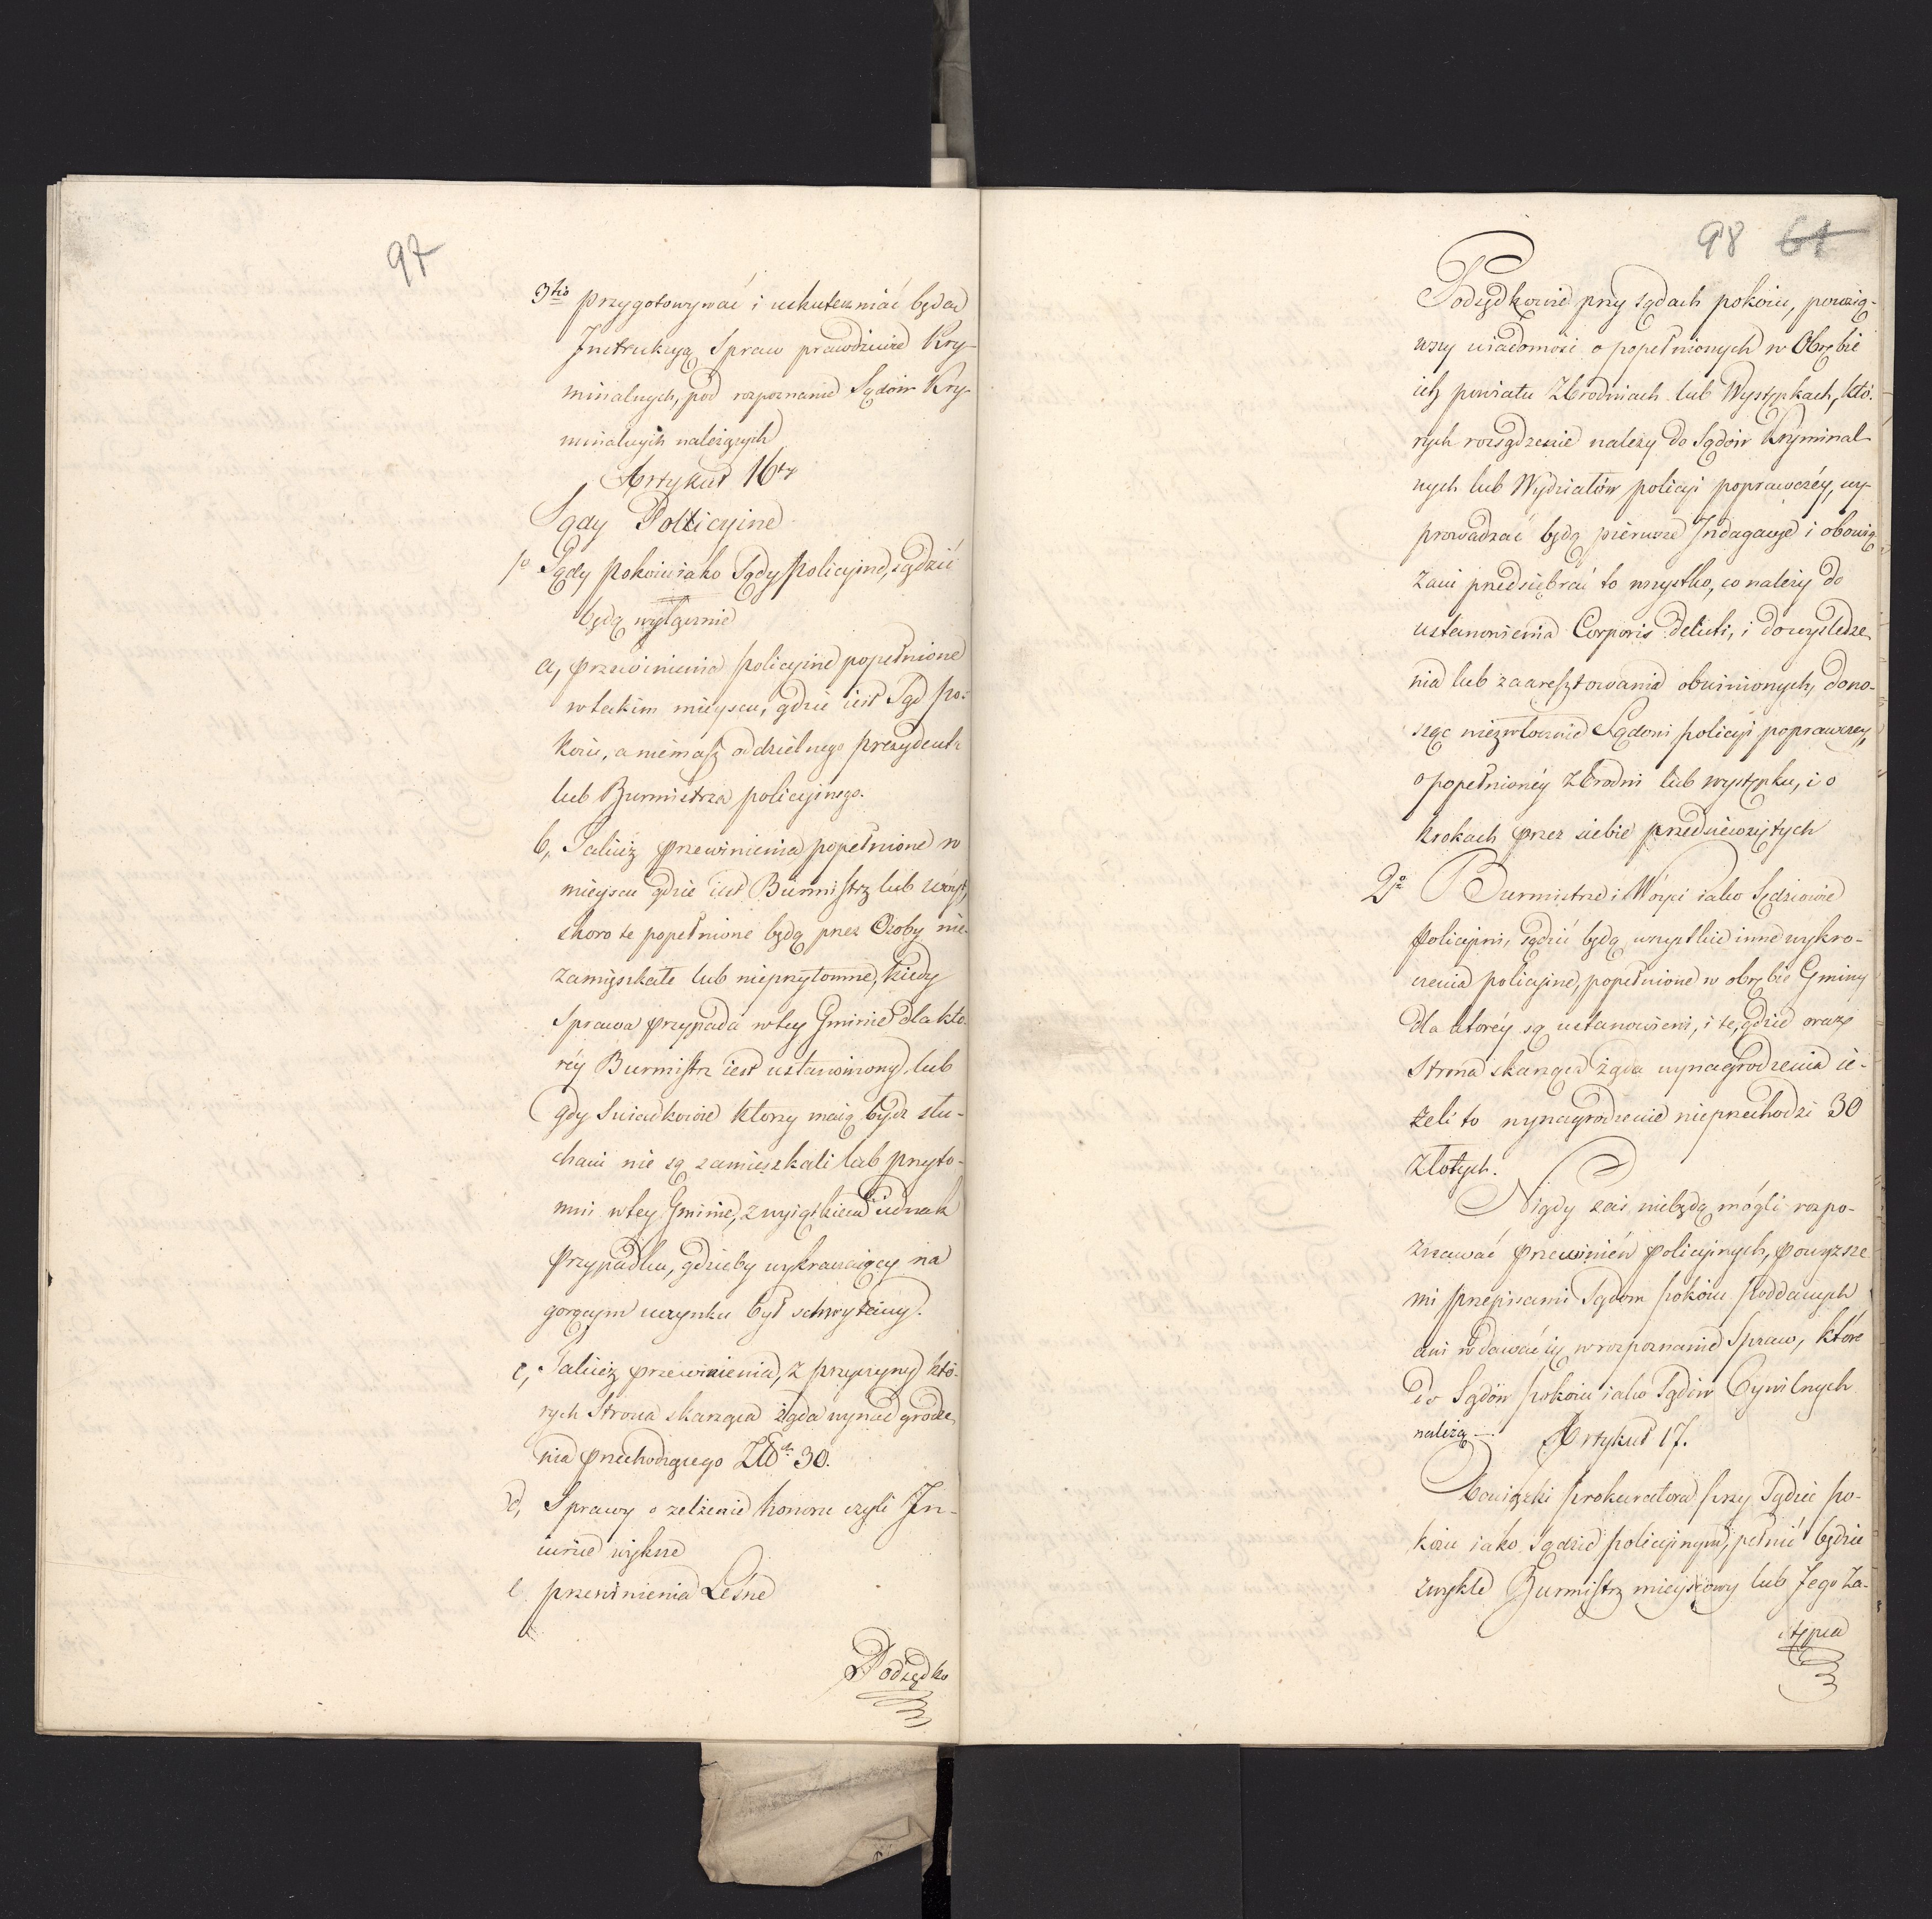 97
3tio przygotowywać i uskuteczniać będą
Instrukcyą Spraw prawdziwie Kry-
minalnych, pod rozpoznanie Sądów Kry-
minalnych należących
Artykuł 16ty
Sądy Policyine
1o Sądy pokoiu iako Sądy policyine, sądzić
będą wyłącznie
a, przewinienia policyine popełnione
w takim mieyscu, gdzie iest Sąd po-
koiu, a niemasz oddzielnego prezydenta
lub Burmistrza policyinego.
b, Takież przewinienia popełnione w
mieyscu gdzie iest Burmistrz lub Wóyt,
skoro te popełnione będą przez Osoby nie-
zamięszkałe lub nieprzytomne, kiedy
Sprawa przypada w tey Gminie dla któ-
réy Burmistrz iest ustanowiony, lub
gdy Swiadkowie ktorzy maią bydz słu-
chani nie są zamięszkali lub przyto-
mni w tey Gminie, z wyiątkiem iednak
Przypadku, gdzieby wykraczaiący na
gorącym uczynku był schwytany.
c, Takież przewinienia, z przyczyny któ-
rych Strona skarżąca żąda wynadgrodze-
nia przechodzącego Zło. 30.
d, Sprawy o zelżenie honoru czyli In-
iurie większe
e przewinienia Leśne
Podsędko
98 61
Podsędkowie przy sądach pokoiu, powzią-
wszy wiadomość o popełnionych w Obrębie
ich powiatu Zbrodniach lub Występkach, któ-
rych rozsądzenie należy do Sądów Kryminal-
nych lub Wydziałów policyi poprawczéy, wy-
prowadzać będą pierwsze Indagacye i obowią-
zani przedsiębrać to wszystko, co należy do
ustanowienia Corporis delicti, i do wyśledze-
nia lub zaaresztowania obwinionych, dono-
sząc niezwłocznie Sądowi policyi poprawczey,
o popełnionéy zbrodni lub występku, i o
krokach przez siebie przedsiewziętych
2o Burmistrze i Wóyci iako Sędziowie
policyini, sądzić będą wszystkie inne wykro-
czenia policyine, popełnione w obrębie Gminy
dla któréy są ustanowieni, i te, gdzie oraz
Strona skarżąca żąda wynagrodzenia ie-
żeli to wynagrodzenie nieprzechodzi 30
złotych.
Nigdy zaś niebędą mógli rozpo-
znawać przewinień policyinych, powyższe
mi przepisami Sądom pokoiu poddanych
ani wdawać się w rozpoznanie Spraw, które
do Sądów pokoiu iako Sądów Cywilnych
należą. —
Artykuł 17.
Obowiązki prokuratora przy Sądzie po-
koiu iako Sądzie policyinym, pełnić będzie
zwykle Burmistrz mieyscowy lub Jego Za-
stępca